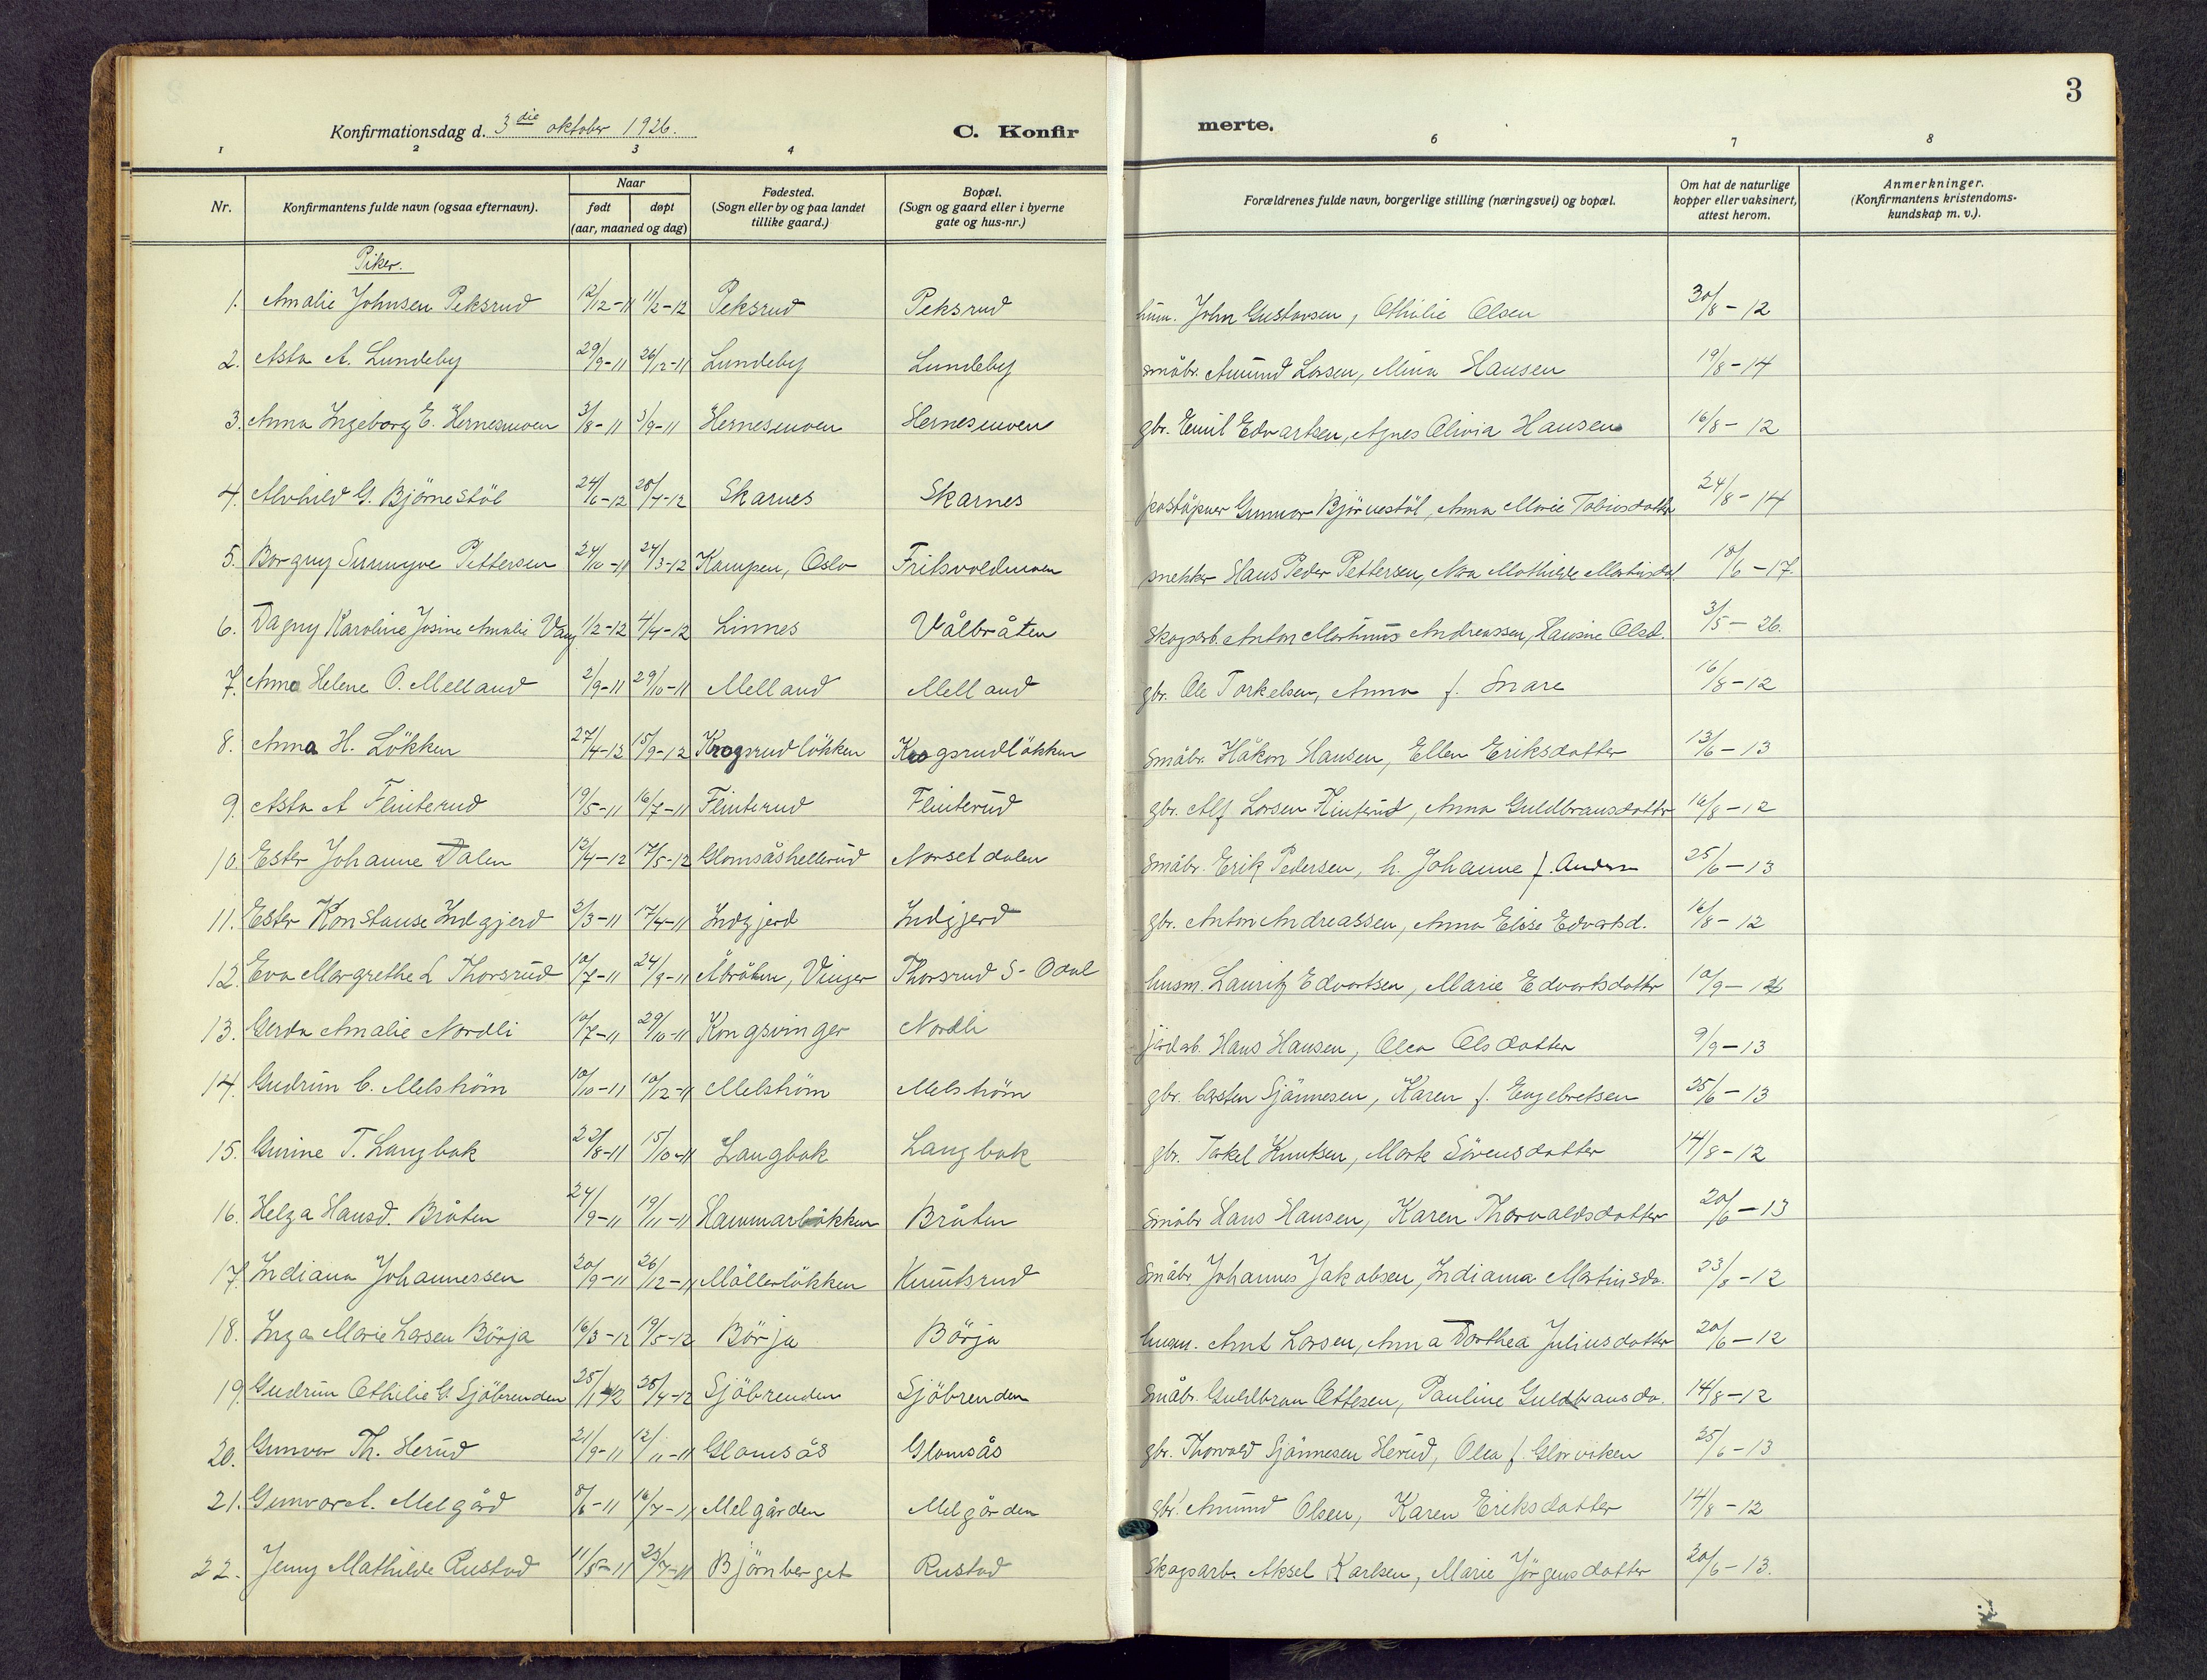 3
Konfirmationsdag d. 3die oktober 1926.
C. Konfir
merte.
1 2 3 4 6 7 8
Nr.
Konfirmantens fulde navn (ogsaa efternavn).
Naar
født døpt
(aar, maaned og dag)
Fødested.
(Sogn eller by og paa landet
tillike gaard.)
Bopæl.
(Sogn og gaard eller i byerne
gate og hus-nr.)
Forældrenes fulde navn, borgerlige stilling (næringsvei) og bopæl.
Om hat de naturlige
kopper eller vaksinert,
attest herom.
Anmerkninger.
(Konfirmantens kristendoms-
kundskap m. v.).
Piker.
1. Amalie Johnsen Peksrud 12/12-11 11/2-12 Peksrud Peksrud husm. John Gustavsen, Othilie Olsen 30/8-12
2. Asta A. Lundeby 29/9-11 26/12-11 Lundeby Lundeby småbr. Amund Larsen, Mina Hansen 19/8-14
3. Anna Ingeborg E. Hernesmoen 3/8-11 3/9-11 Hernesmoen Hernesmoen gbr. Emil Edvartsen, Agnes Olivia Hansen 16/8-12
4. Alvhild G. Björnestöl 24/6-12 28/7-12 Skarnes Skarnes poståpner Gunnar Björnestöl, Anna Marie Tobiasdatter 24/8-14
5. Borgny Sunnyve Pettersen 24/10-11 24/3-12 Kampen, Oslo Fritsvoldmoen snekker Hans Peder Pettersen, Mathilde 18/6-17.
6. Dagny Karoline Josine Amalie Vang 1/2-12 4/4-12 Linnes Vålbråten Skogsarb. Anton Martinus Andreassen, Hansine Olsd. 3/5-26.
7. Anna Helene O. Melland 2/9-11 29/10-11 Melland Melland gbr. Ole Torkelsen, Anna f. Snare 16/8-12
8. Anna H. Lökken 27/4-12 15/9-12 Krogsrudlökken Krogsrudlökken Småbr. Håkon Hansen, Ellen Eriksdatter 13/6-13
9. Asta A Flinterud 19/5-11 16/7-11 Flinterud Flinterud gbr. Alf Larsen Flinterud, Anna Guldbransdatter 16/8-12
10. Ester Johanne Dalen 12/4-12 17/5-12 Glomsåshellerud Norsetdalen Småbr. Erik Pedersen, h. Johanne f. Andersen 25/6-13
11. Ester Konstanse Indgjerd 2/3-11 17/4-11 Indgjerd Indgjerd gbr. Anton Andreassen, Anna Elise Edvartsd. 16/8-12
12. Eva Margrethe L Thorsrud 10/7-11 24/9-11 Åbråten, Vinger Thorsrud S-Odal husm. Lauritz Edvartsen, Marie Edvartsdatter 10/9-12
13. Gerda Amalie Nordli 10/7-11 29/10-11 Kongsvinger Nordli jordarb. Hans Hansen, Olea Olsdatter 9/9-13
14. Gudrun C. Melström 10/10-11 10/12-11 Melström Melström gbr. Carsten Sjännesen, Karen f. Engebretsen 25/6-13
15. Gurine T. Langbak 22/8-11 15/10-11 Langbak Langbak gbr. Torkel Knutsen, Marte Sörensdatter 14/8-12
16. Helga Hansd. Bråten 24/9-11 19/11-11 Hammarlökken Bråten Småbr Hans Hansen, Karen Thorvaldsdatter 20/6-13
17. Indiana Johannessen 20/9-11 26/12-11 Möllerlökken Knutsrud Småbr. Johannes Jakobsen, Indiana Martinsda. 23/8-12
18. Inga Marie Larsen Börja 16/3-12 19/5-12 Börja Börja husm. Arnt Larsen, Anna Dorthea Juliusdatter 20/6-12
19. Gudrun Othilie G. Sjöbrenden 25/1-12 28/4-12 Sjöbrenden Sjöbrenden Småbr. Guldbran Ottesen, Pauline Guldbransda. 14/8-12
20. Gunvor Th. Herud 21/9-11 12/11-11 Glomsås Glomsås gbr. Thorvald Sjännesen Herud, Olea f. Glorviken 25/6-13
21. Gunvor A. Melgård 8/6-11 16/7-11 Melgården Melgården gbr. Amund Olsen, Karen Eriksdatter 14/8-12
22. Jenny Mathilde Rustad 11/5-11 23/7-11 Björnberget Rustad Skogsarb. Aksel Karlsen, Marie Jörgensdatter 20/6-13.